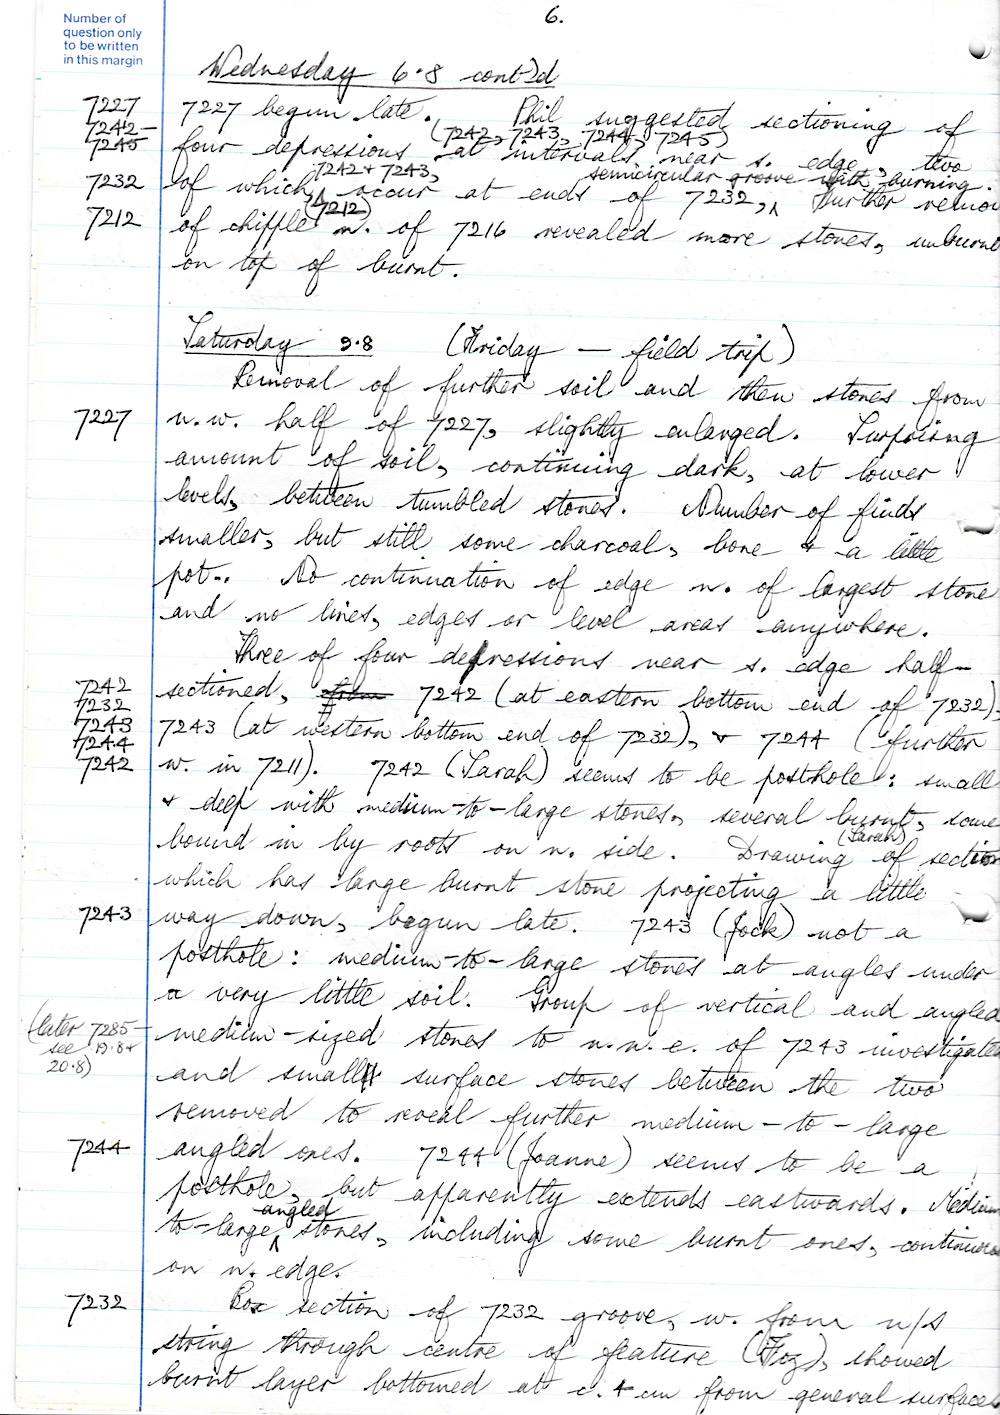 6.
Number of
question only
to be written
in this margin
Wednesday 6·8 cont'd
7227 7227 begun late. Phil suggested sectioning of
7242-
7245
(7242, 7243, 7244, 7245)
four depressions at intervals near s. edge, two
7242 + 7243, semicircular groove with burning.
7232 of which occur at ends of 7232, Further remov
(7212)
7212 of chipple n. of 7216 revealed more stones, unburnt
on top of burnt.
Saturday 9·8 (Friday — field trip)
Removal of further soil and then stones from
7227 n.w. half of 7227, slightly enlarged. Surprising
amount of soil, continuing dark, at lower
levels, between tumbled stones. Number of finds
smaller, but still some charcoal, bone + a little
pot.. No continuation of edge n. of largest stone
and no lines, edges or level areas anywhere.
Three of four depressions near s. edge half-
7242 sectioned, 7242 (at eastern bottom end of 7232),
7232
7243 7243 (at western bottom end of 7232), + 7244 (further
7244
7242 w. in 7211). 7242 (Sarah) seems to be posthole: small
+ deep with medium-to-large stones, several burnt, some
bound in by roots on n. side. Drawing of section
(Sarah)
which has large burnt stone projecting a little
7243 way down, begun late. 7243 (Jock) not a
posthole: medium-to-large stones at angles under
a very little soil. Group of vertical and angled
(later 7285-
see 19·8+
20·8)
medium-sized stones to n.n.e. of 7243 investigated
and small surface stones between the two
removed to reveal further medium-to-large
7244 angled ones. 7244 (Joanne) seems to be a
posthole, but apparently extends eastwards. Medium
angled
to-large stones, including some burnt ones, continues
on n. edge.
7232 Box section of 7232 groove, w. from n/s
string through centre of feature (Foz), showed
burnt layer bottomed at c. 4 cm from general surface